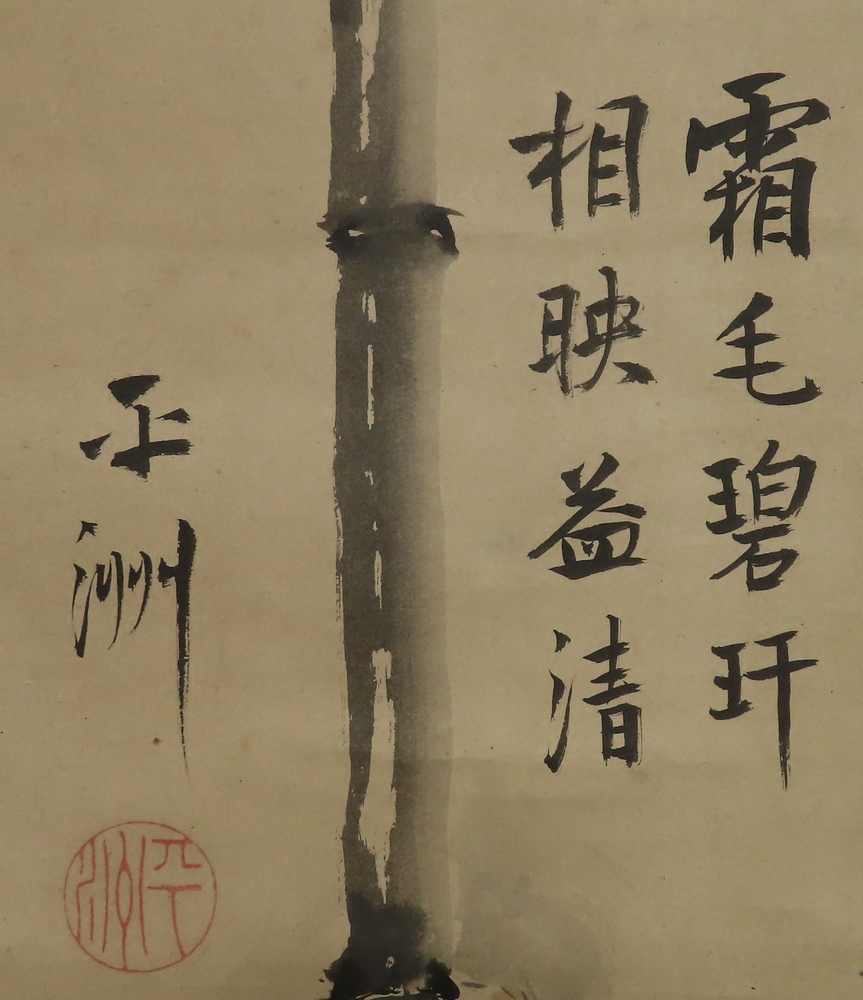 霜毛碧玕
相映益清
平洲
平洲